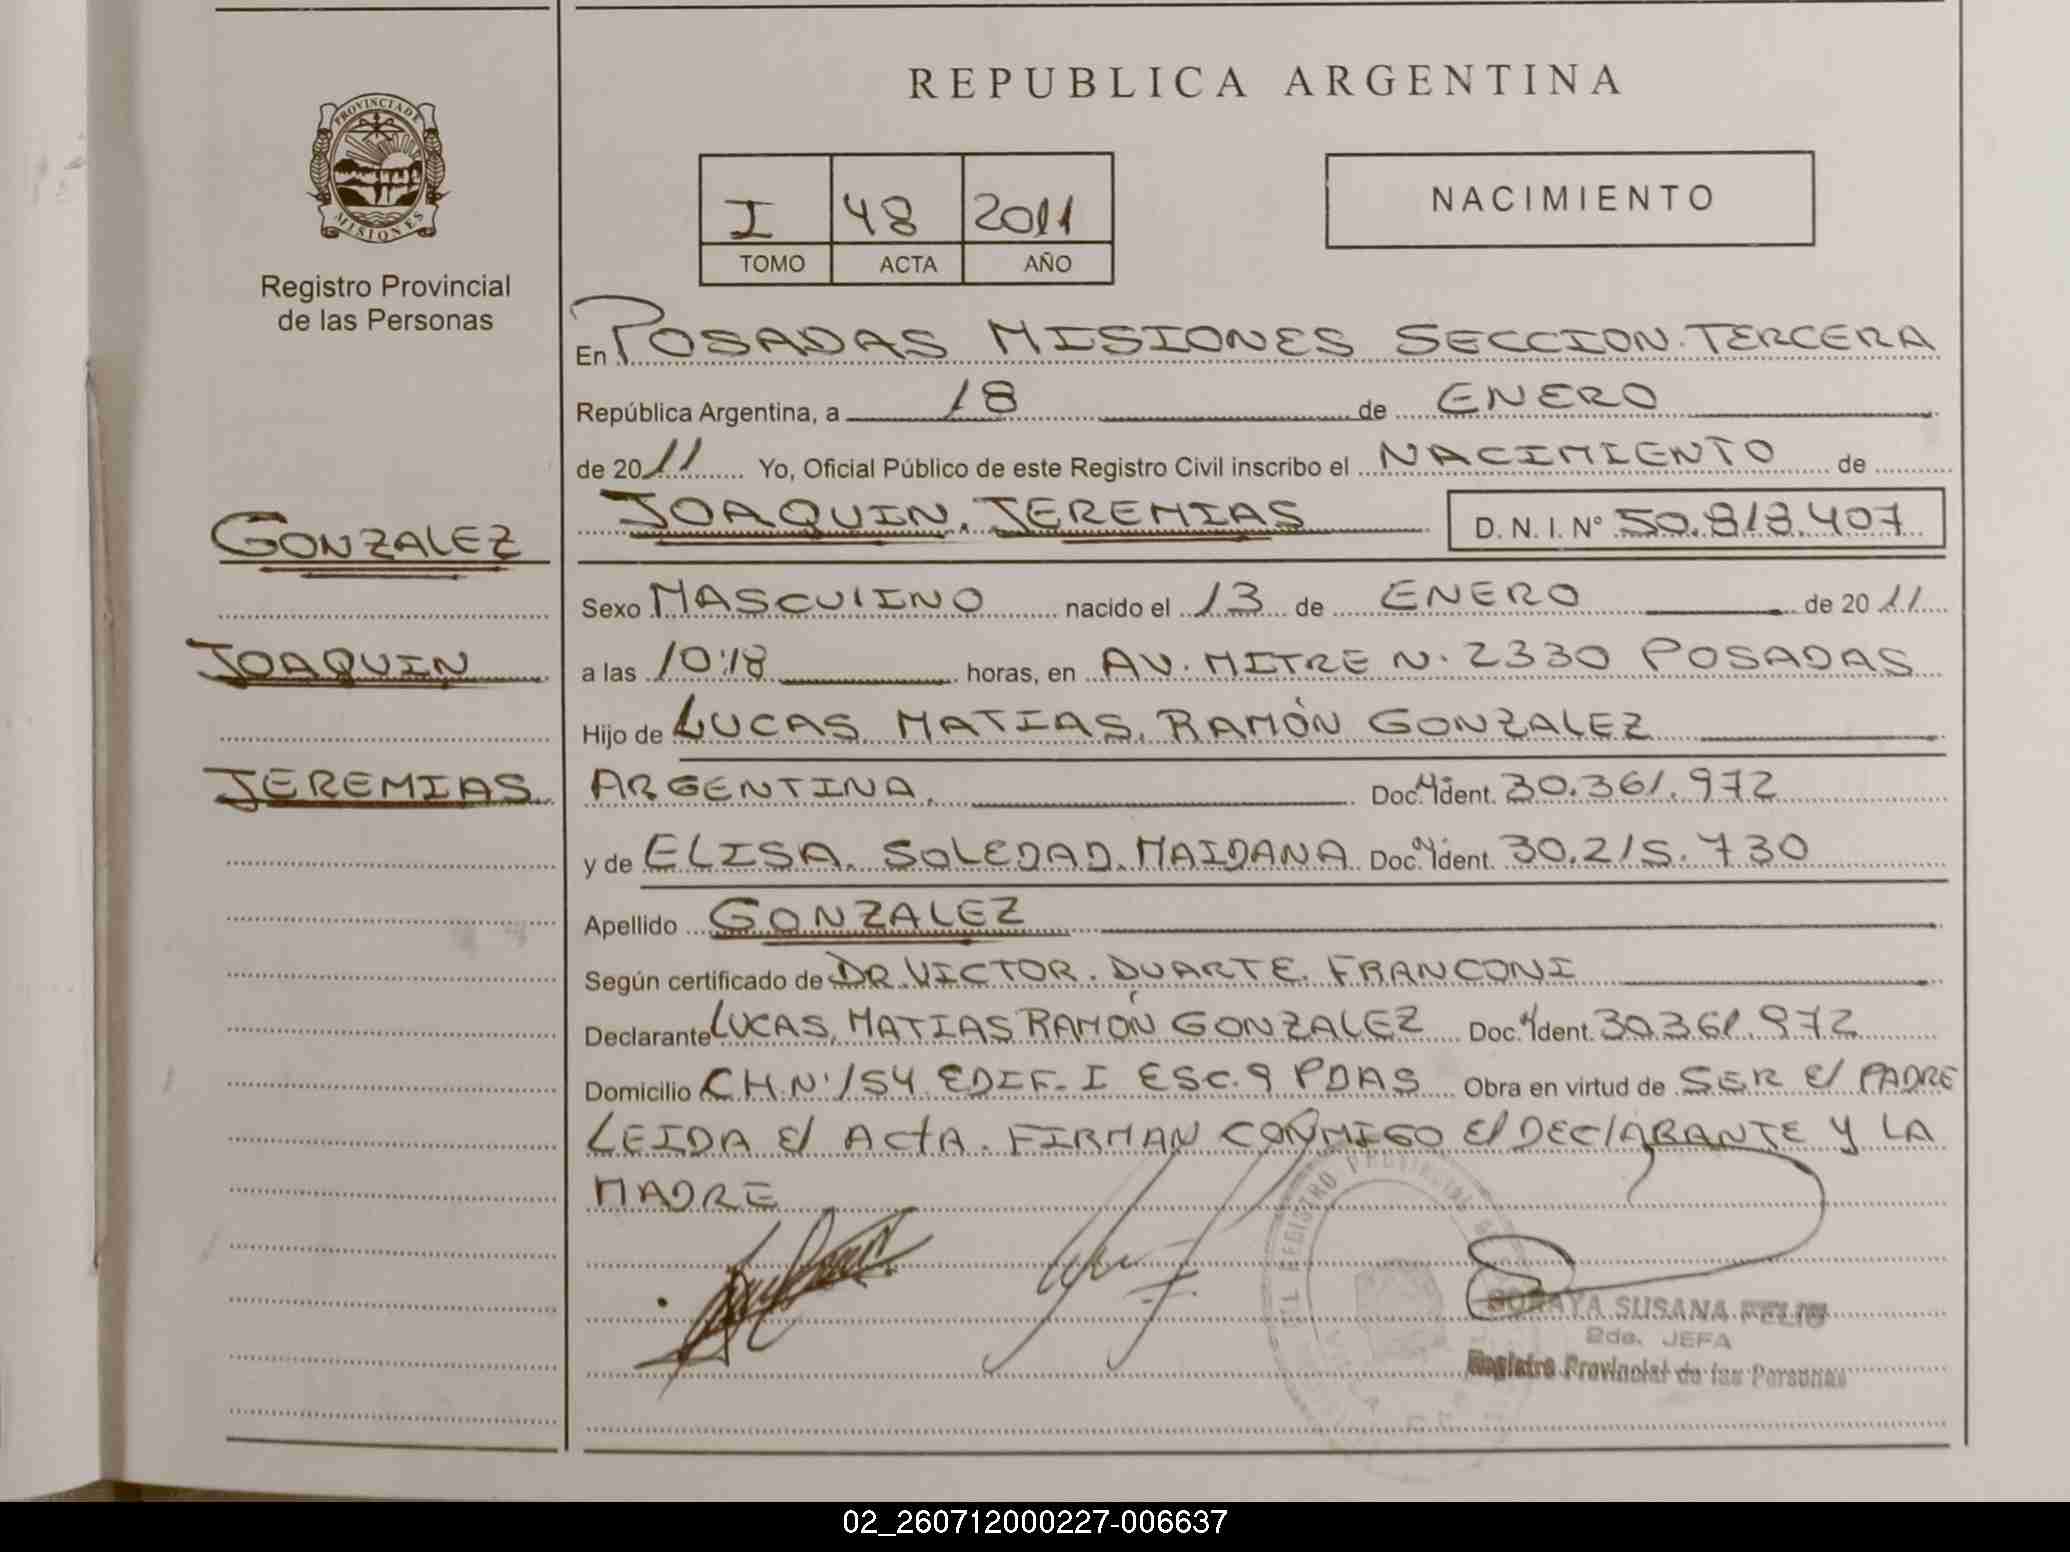 REPUBLICA ARGENTINA
PROVINCIA DE
MISIONES
Registro Provincial
de las Personas
I 48 2011
TOMO ACTA AÑO
NACIMIENTO
En POSADAS MISIONES SECCION TERCERA
República Argentina, a 18 de ENERO
de 2011 Yo, Oficial Público de este Registro Civil inscribo el NACIMIENTO de
JOAQUIN, JEREMIAS D. N. I. N° 50.818.407
GONZALEZ
Sexo MASCUlINO nacido el 13 de ENERO de 2011
JOAQUIN
a las 10:18 horas, en AV. MITRE N. 2330 POSADAS
Hijo de LUCAS MATIAS, RAMÓN GONZALEZ
JEREMIAS
ARGENTINA. Doc. Ident. 30.361.972
y de ELISA. SOLEDAD. MAIDANA Doc. Ident. 30.215.730
Apellido GONZALEZ
Según certificado de DR. VICTOR. DUARTE. FRANCONI
Declarante LUCAS, MATIAS RAMÓN GONZALEZ Doc. Ident. 30.361.972
Domicilio CH.N°154 EDIF. I ESC.9 PDAS Obra en virtud de SER El PADRE
LEIDA El ACtA. FIRMAN CONMIGO El DEClARANTE Y LA
MADRE
REGISTRO PROVINCIAL
SORAYA SUSANA FELIU
2da. JEFA
Registro Provincial de las Personas
02_260712000227-006637